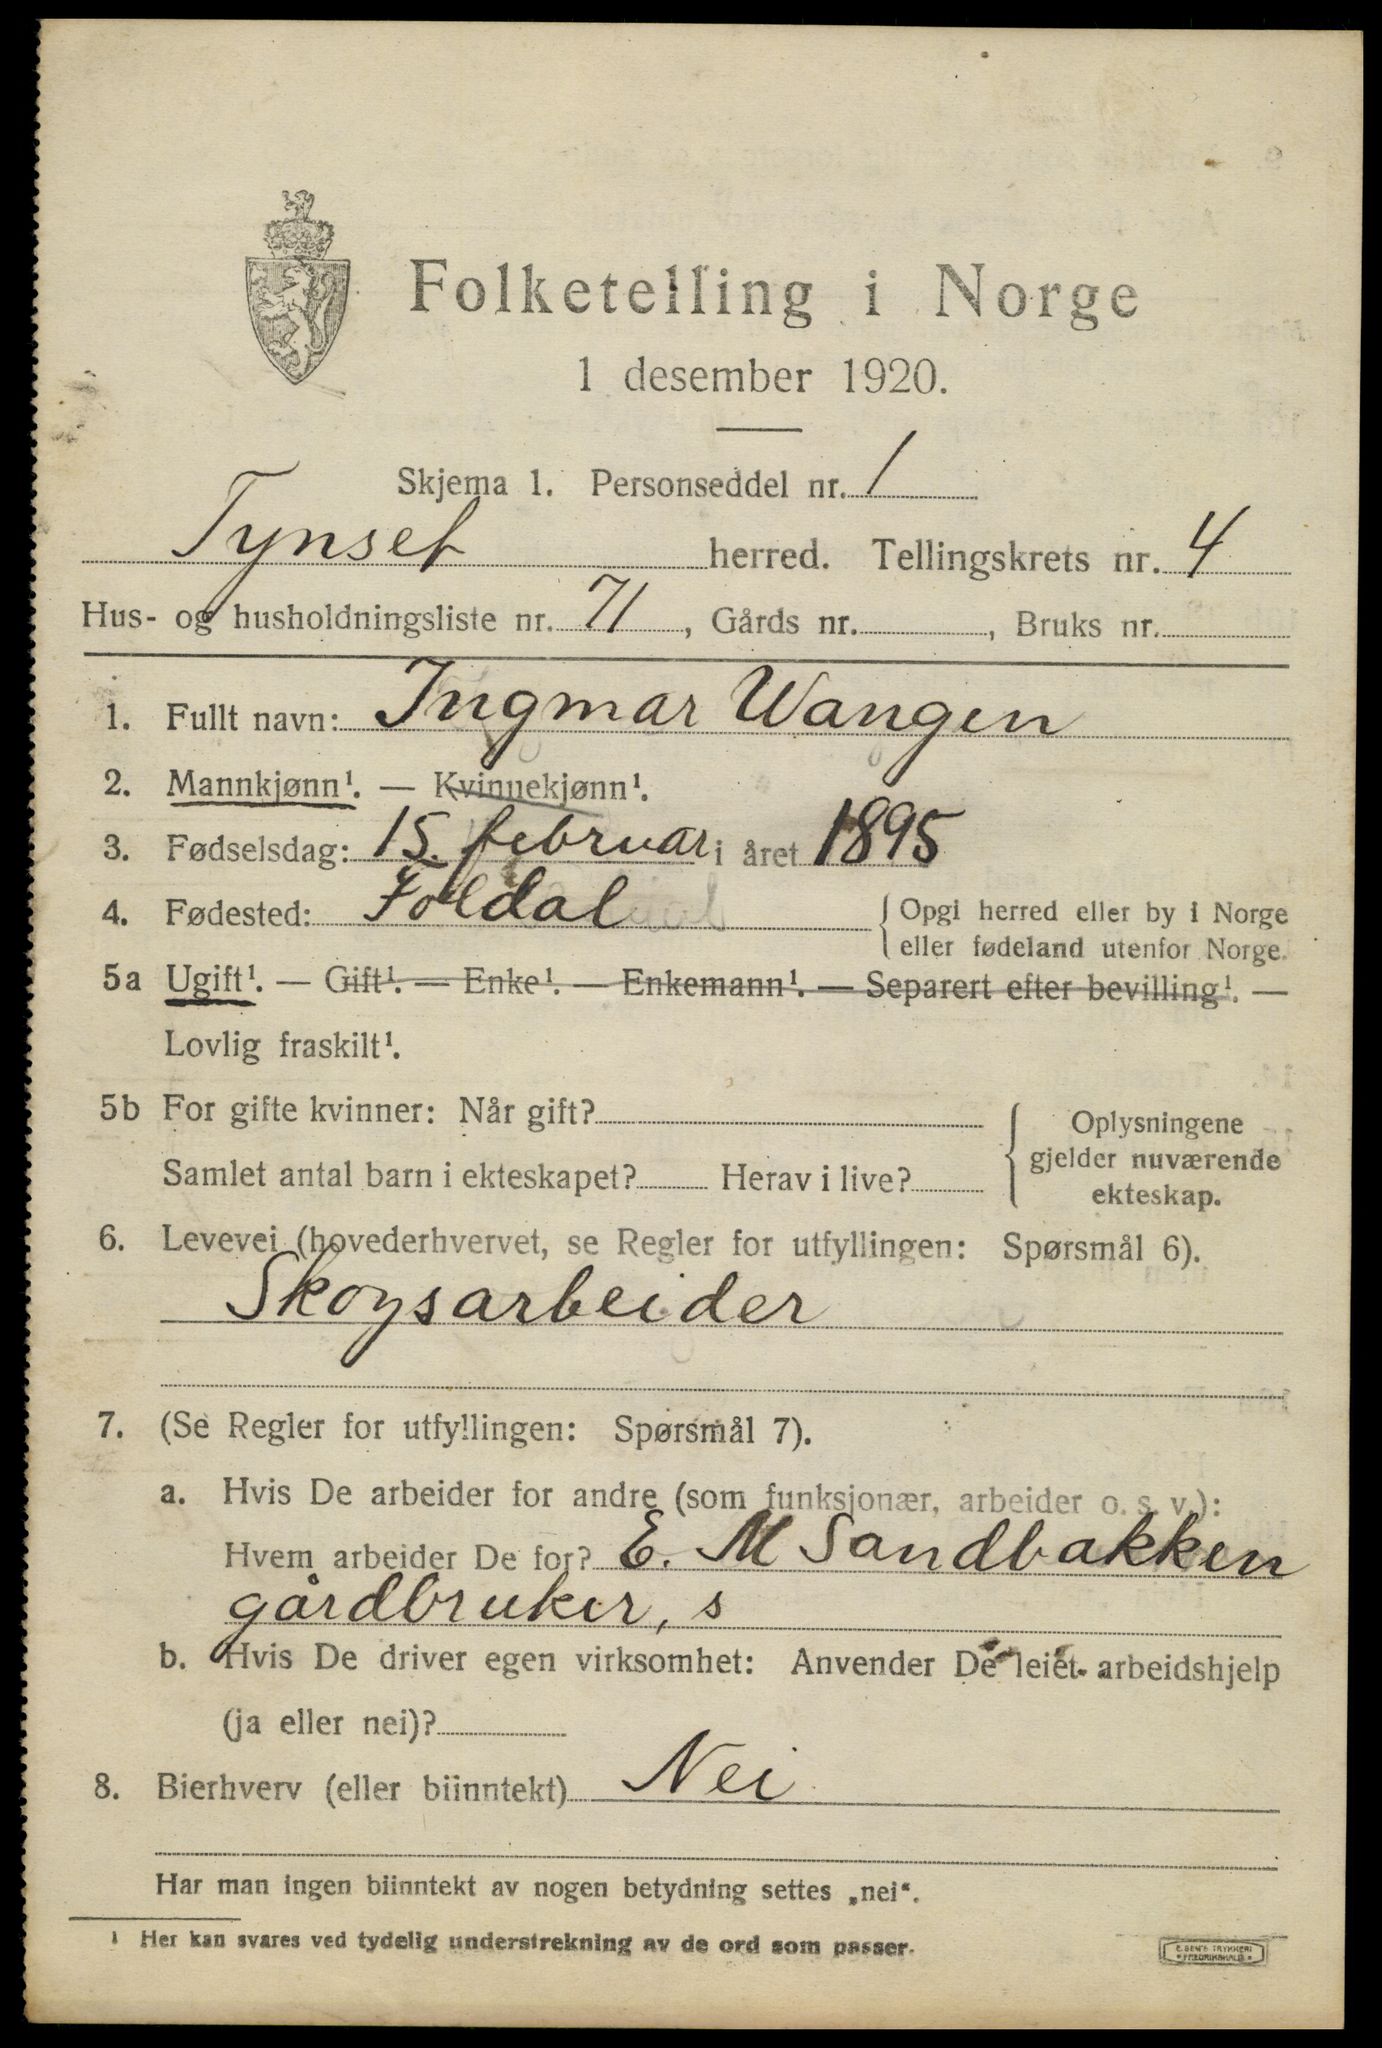 Folketelling i Norge
1 desember 1920.
Skjema 1. Personseddel nr. 1
Tynset herred. Tellingskrets nr. 4
Hus- og husholdningsliste nr. 71, Gårds nr. , Bruks nr.
1. Fullt navn: Ingmar Wangen
2. Mannkjønn¹. — Kvinnekjønn¹.
3. Fødselsdag: 15. februar i året 1895
4. Fødested: Foldal {Opgi herred eller by i Norge
eller fødeland utenfor Norge.
5a Ugift¹. — Gift¹. — Enke¹. — Enkemann¹. — Separert efter bevilling¹. —
Lovlig fraskilt¹.
5b For gifte kvinner: Når gift? { Oplysningene
gjelder nuværende
Samlet antal barn i ekteskapet? Herav i live? ekteskap.
6. Levevei (hovederhvervet, se Regler for utfyllingen: Spørsmål 6).
Skogsarbeider
7. (Se Regler for utfyllingen: Spørsmål 7).
a. Hvis De arbeider for andre (som funksjonær, arbeider o. s. v.):
Hvem arbeider De for? E. M Sandbakken
gårdbruker, s
b. Hvis De driver egen virksomhet: Anvender De leiet arbeidshjelp
(ja eller nei)?
8. Bierhverv (eller biinntekt) Nei
Har man ingen biinntekt av nogen betydning settes „nei“.
¹ Her kan svares ved tydelig understrekning av de ord som passer.
E. SEM'S TRYKKERI
* FREDRIKSHALD *